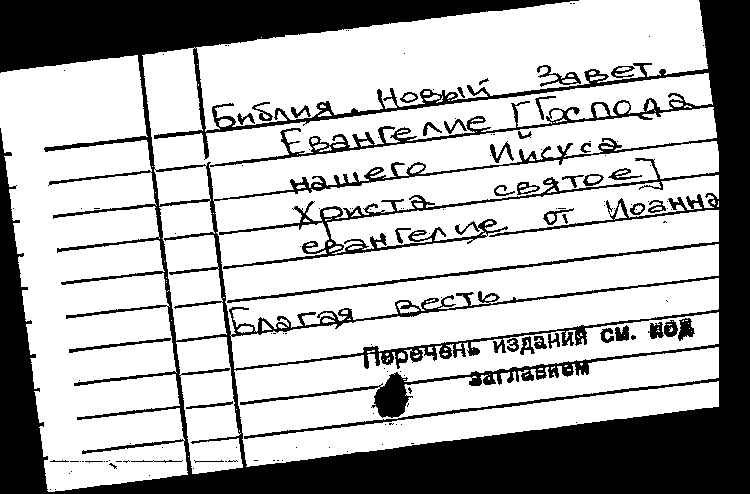 Библия. Новый Завет.
Евангелие [Господа
нашего Иисуса
Христа святое]
евангелие от Иоанна
Благая весть.
Перечень изданий см. под
заглавием